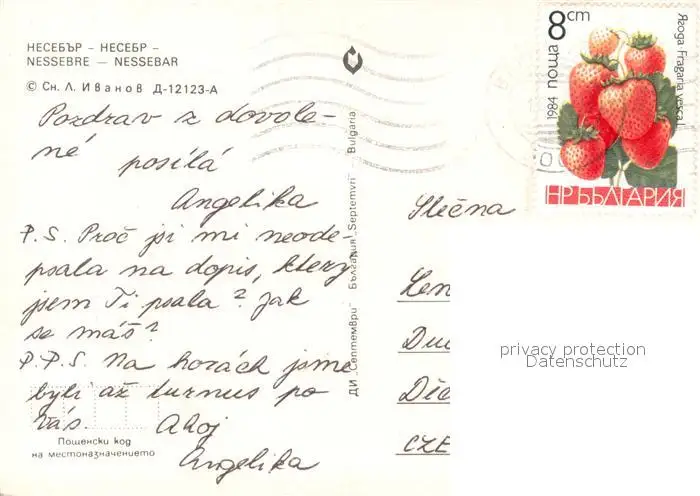 НЕСЕБЪР – НЕСЕБР –
NESSEBRE — NESSEBAR
© Сн. Л. Иванов Д-12123-А
Pozdrav z dovole-
né posílá
Angelika
P.S. Proč jsi mi neode-
psala na dopis, který
jsem Ti psala? Jak
se máš?
P.P.S. Na horách jsme
byli až turnus po
Vás. Ahoj
Angelika
Пощенски код
на местоназначението
ДИ „Септември" България "Septemvri" Bulgaria
8 cm
поща
1984
Ягода Fragaria vesca
НР БЪЛГАРИЯ
Slečna
Len
Děč
CZE
privacy protection
Datenschutz